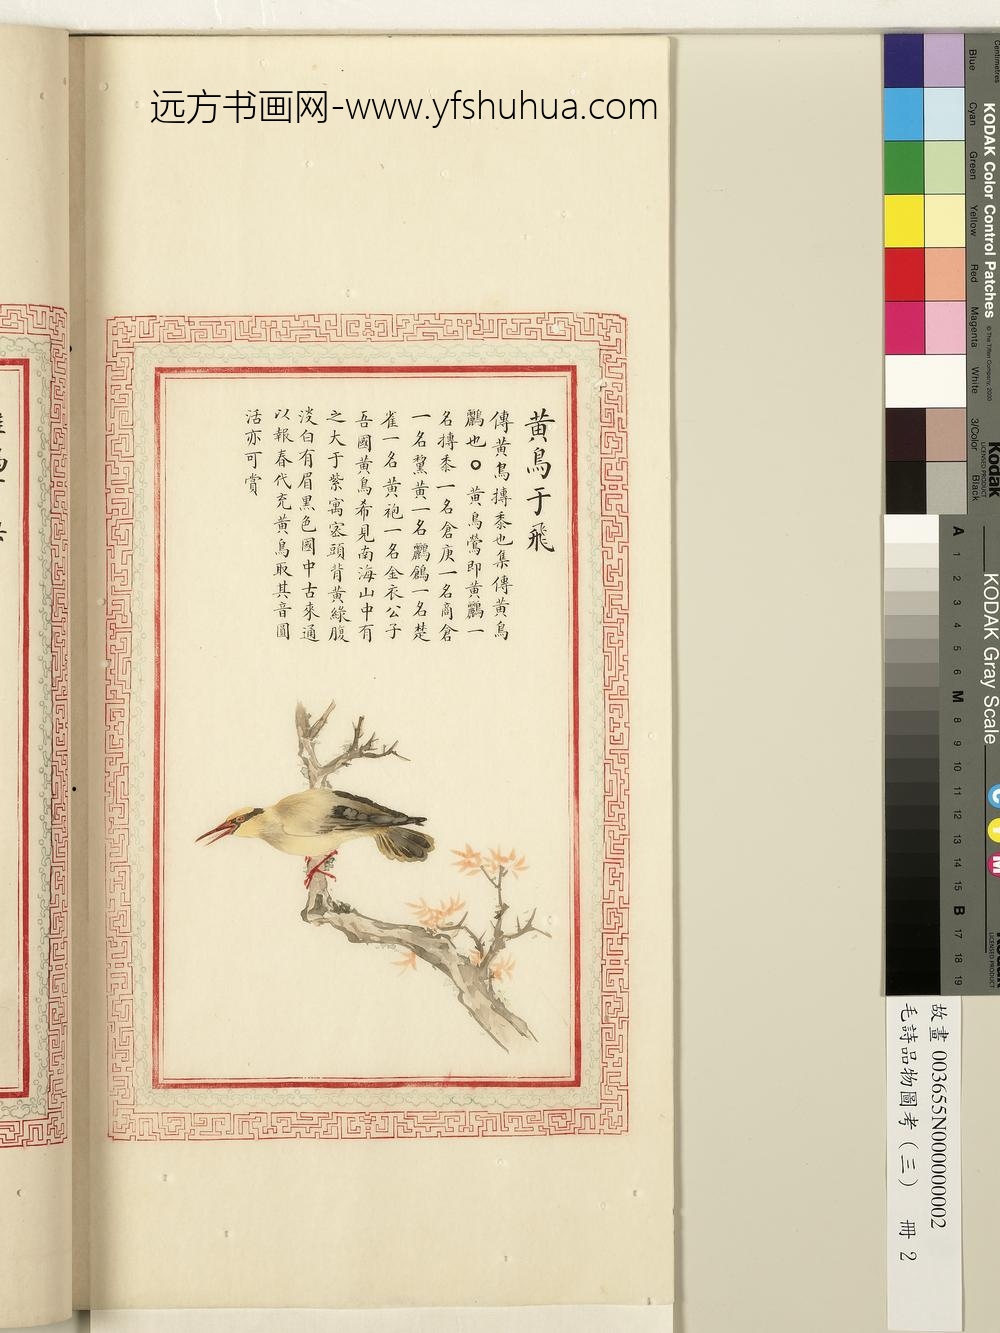 远方书画网-www.yfshuhua.com
黄鳥于飛
傳黄鳥摶黍也集傳黄鳥
鸝也○黄鳥鶯即黄鸝一
名摶黍一名倉庚一名商倉
一名鵹黄一名鸝鶬一名楚
雀一名黄袍一名金衣公子
吾國黄鳥希見南海山中有
之大于㰆寓窓頭背黄綠腹
淡白有眉黒色國中古來通
以報春代充黄鳥取其音圓
活亦可賞
Centimetres
Blue
Cyan
Green
Yellow
Red
Magenta
White
3/Color
Black
KODAK Color Control Patches
© The Tiffen Company, 2000
Kodak
LICENSED PRODUCT
KODAK Gray Scale
A 1 2 3 4 5 6 M 8 9 10 11 12 13 14 15 B 17 18 19
C
Y
M
Kodak
LICENSED PRODUCT
故畫 003655N000000002
毛詩品物圖考（三） 冊 2